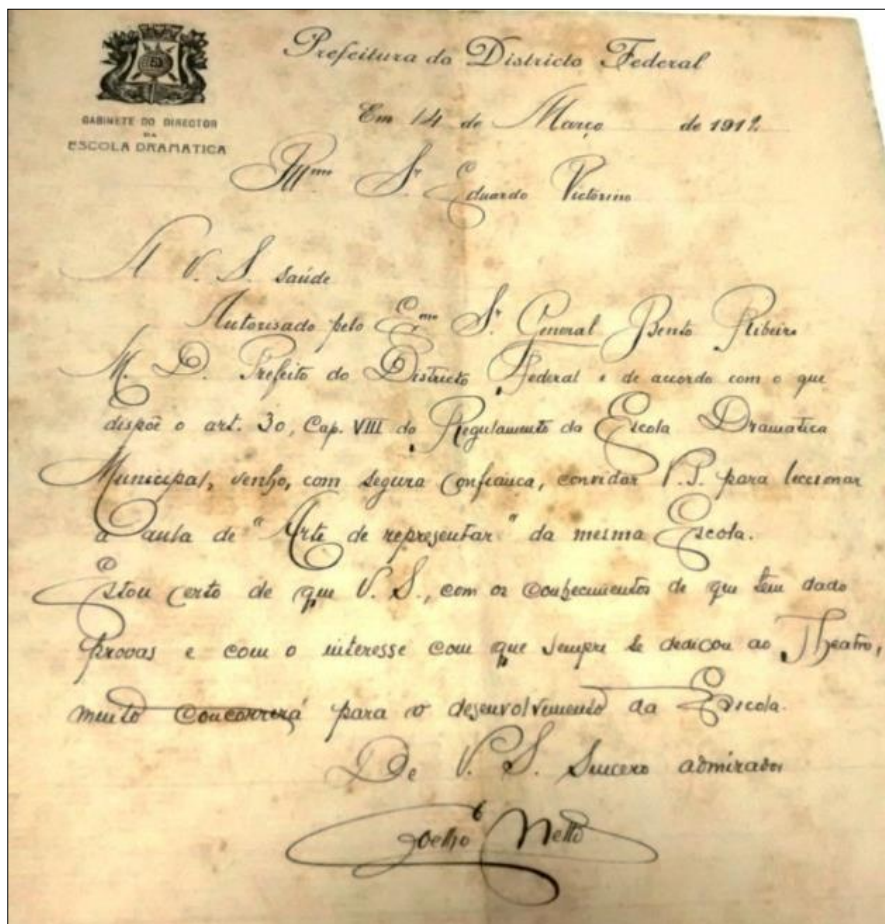 Prefeitura do Districto Federal
GABINETE DO DIRECTOR
DA
ESCOLA DRAMATICA
Em 14 de Março de 1912
Illmo Sr Eduardo Victorino
A V. S. saúde
Autorisado pelo Exmo Sr General Bento Ribeiro
M. D. Prefeito do Districto Federal e de accordo com o que
dispõe o art. 30, Cap. VIII do Regulamento da Escola Dramatica
Municipal, venho, com segura confiança, convidar V. S. para leccionar
a aula de "Arte de representar" da mesma Escola.
Estou certo de que V. S., com os conhecimentos de que tem dado
provas e com o interesse com que sempre se dedicou ao Theatro,
muito concorrerá para o desenvolvimento da Escola.
De V. S. Sincero admirador
Coelho Netto